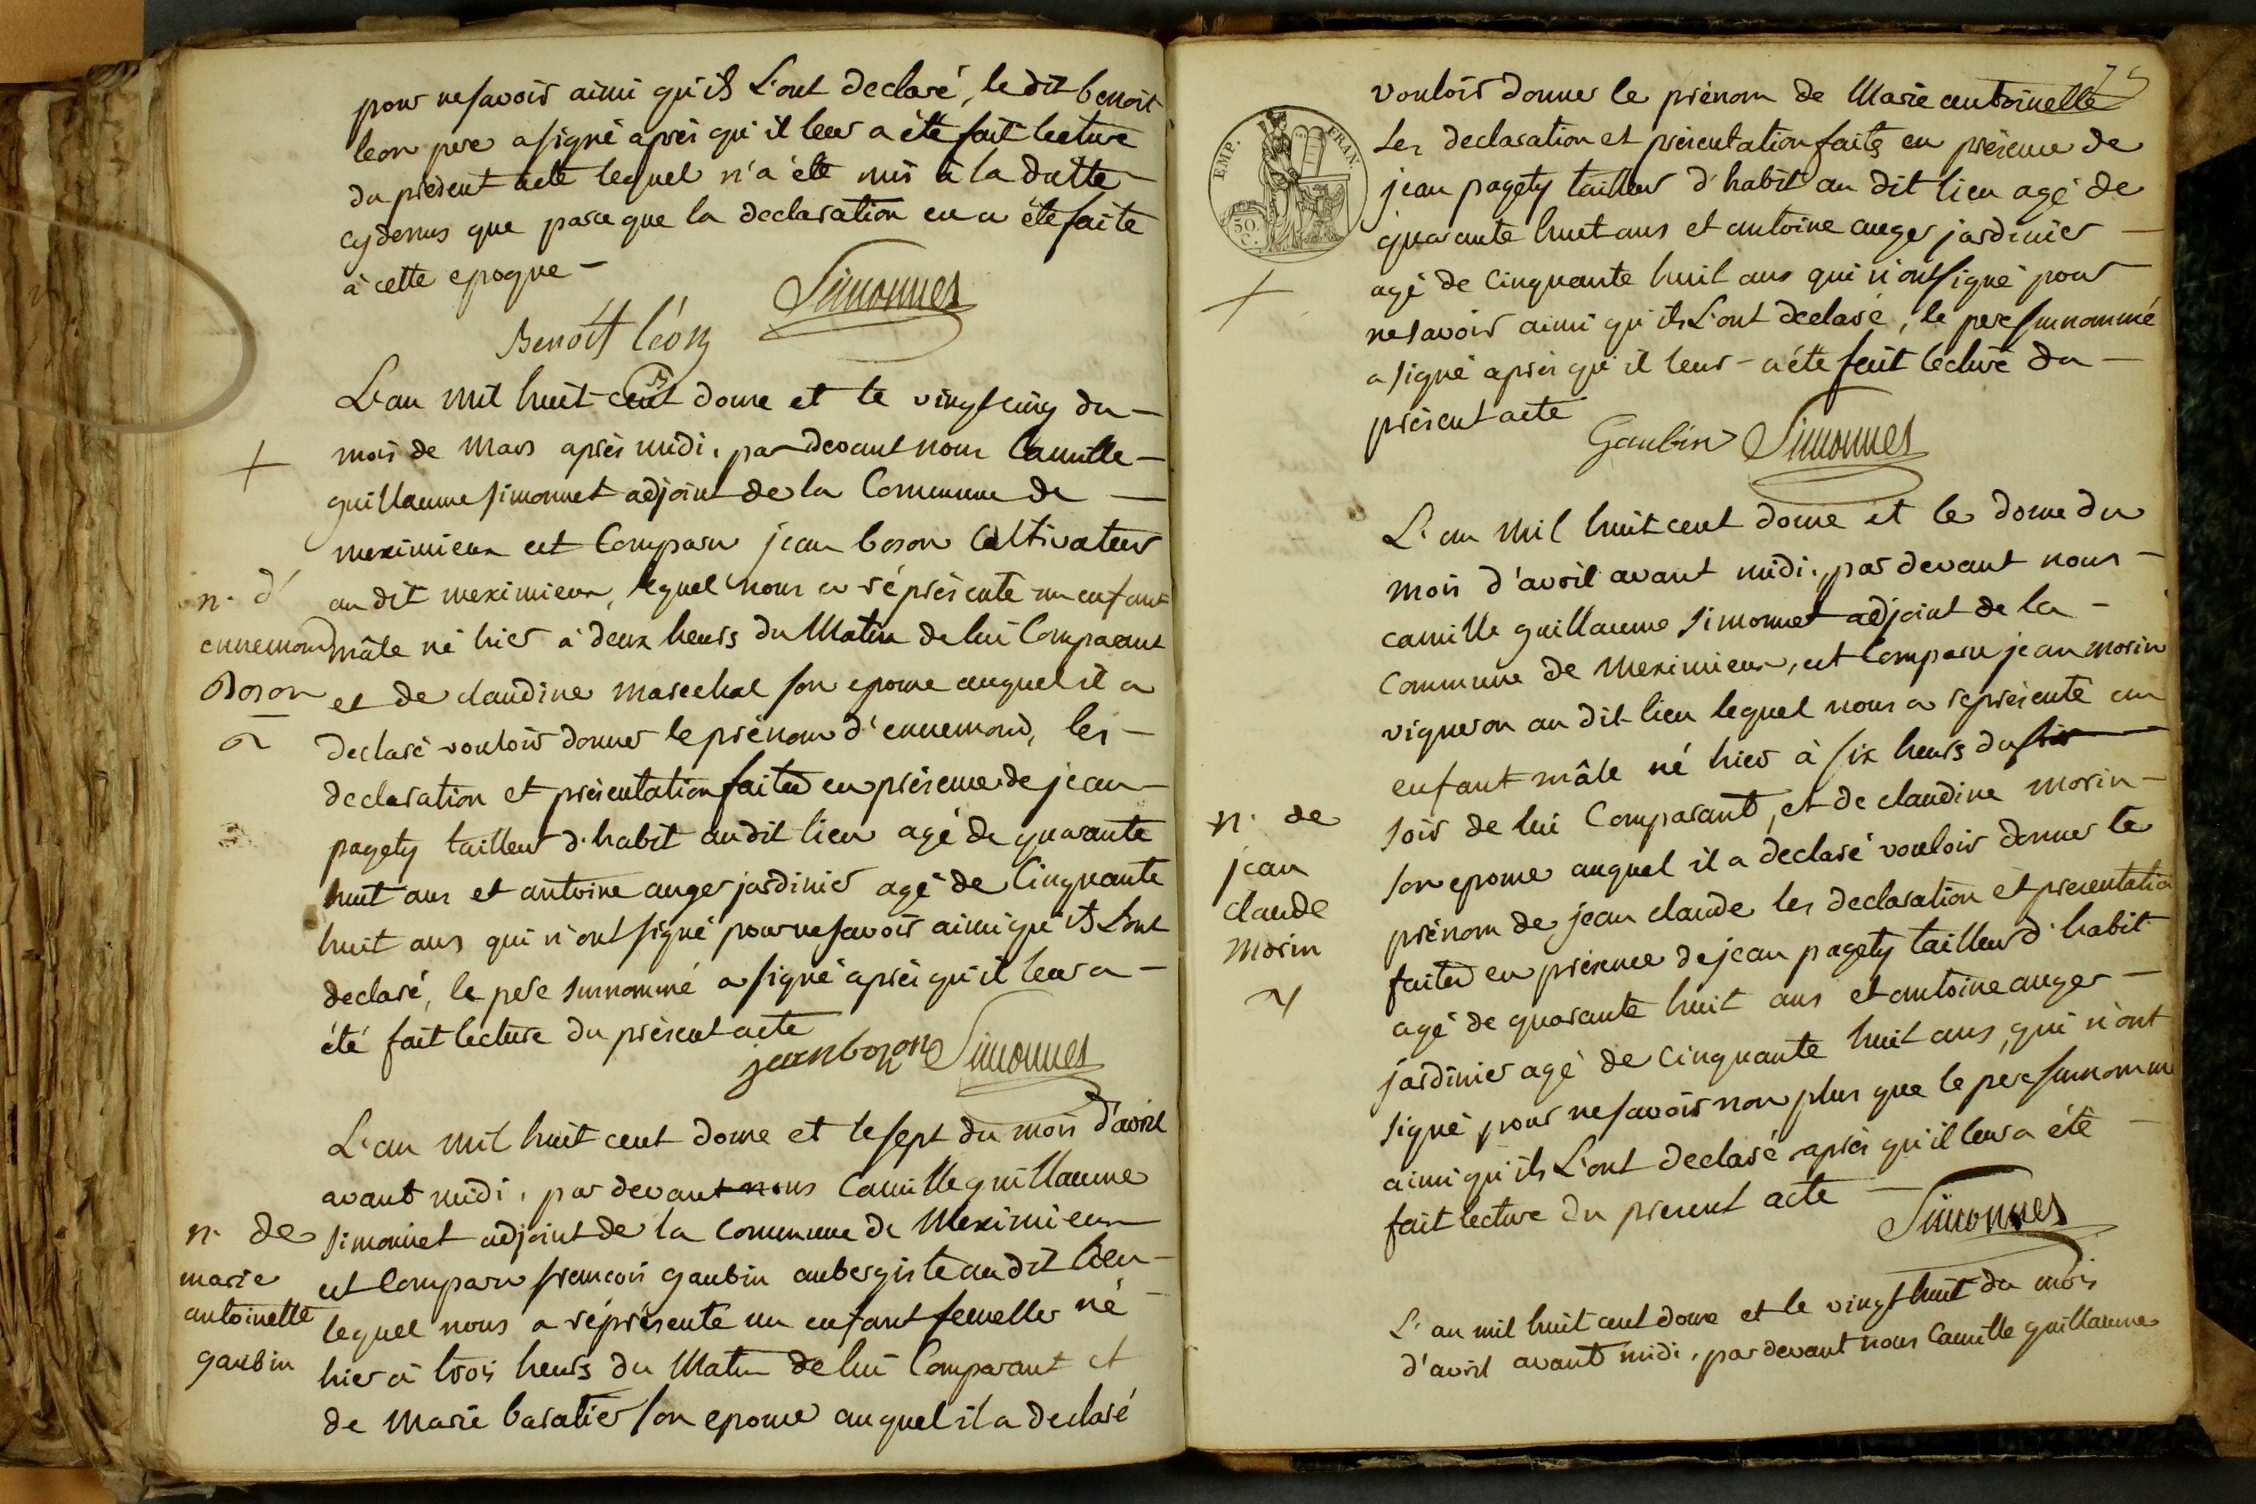 pour ne savoir ainsi qu'ils L'ont declaré, le dit benoit
leon pere a signé après qu'il leur a été fait lecture
du présent acte lequel n'a été mis à la datte
cydessus que parce que la declaration en a été faite
à cette epoque
Benoît léon Simonnet
L'an mil huit cent douze et le vingt cinq du
mois de Mars après midi, par devant nous Camille
guillaume simonnet adjoint de la Commune de
meximieux est Comparu jean boson Cultivateur
au dit meximieux, lequel nous a réprésenté un enfant
mâle né hier à deux heurs du Matin de lui Comparant
et de claudine marechal son epouse auquel il a
declaré vouloir donner le prénom d'ennemond, les
declaration et présentation faites en présence de jean
pagety tailleur d'habit audit lieu agé de quarante
huit ans et antoine auger jardinier agé de Cinquante
huit ans qui n'ont signé pour ne savoir ainsi qu'ils L'ont
declaré, le pere surnommé a signé après qu'il leur a
été fait lecture du présent acte
n. d'
ennemond
Boson
jean bozon Simonnet
L'an mil huit cent douze et le sept du mois d'avril
avant midi, par devant nous Camille guillaume
simonnet adjoint de la Commune de Meximieux
est Comparu francois gaubin aubergiste au dit lieu
lequel nous a réprésenté un enfant femelle né
hier à trois heurs du Matin de lui Comparant et
de Marie baratier son epouse auquel il a declaré
n. de
marie
antoinette
gaubin
75
vouloir donner le prénom de Marie antoinette
Les declaration et présentation faits en présence de
jean pagety tailleur d'habit au dit lieu agé de
quarante huit ans et antoine auger jardinier
agé de Cinquante huit ans qui n'ont signé pour
ne savoir ainsi qu'ils L'ont declaré, le pere surnommé
a signé après qu'il leur a été fait lecture du
présent acte
EMP. FRAN
50
C.
Gaubin Simonnet
L'an mil huit cent douze et le douze du
mois d'avril avant midi, par devant nous
camille guillaume simonnet adjoint de la
Commune de Meximieux, est Comparu jean morin
vigneron au dit lieu lequel nous a représenté un
enfant mâle né hier à six heurs du soir
soir de lui Comparant, et de claudine morin
son epouse auquel il a declaré vouloir donner le
prénom de jean claude les declaration et presentation
faites en présence de jean pagety tailleur d'habit
agé de quarante huit ans et antoine auger
jardinier agé de cinquante huit ans, qui n'ont
signé pour ne savoir non plus que le pere surnommé
ainsi qu'ils L'ont declaré après qu'il leur a été
fait lecture du present acte
n. de
jean
claude
morin
Simonnet
L'an mil huit cent douze et le vingt huit du mois
d'avril avant midi, par devant nous Camille guillaume